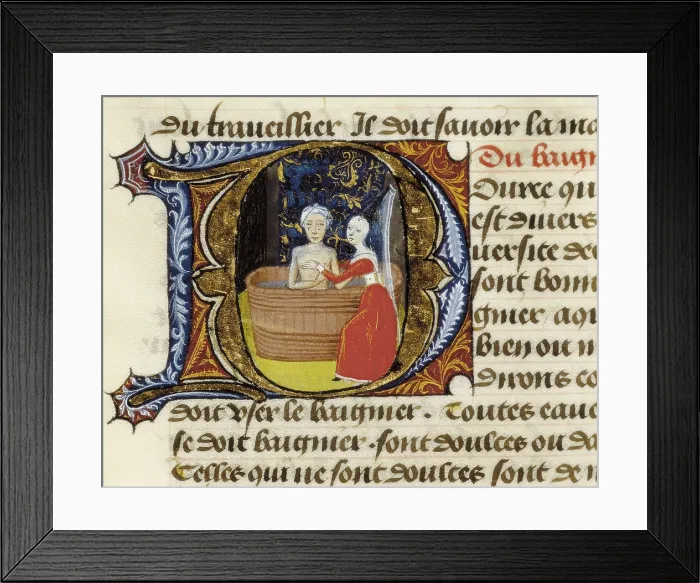 du traueillier Il doit sauoir la ma
Du baign
Ource qu
est diuers
uersite de
sont bonn
gnier aqu
bien ou n
dirons co
doit vser le baignier. Toutes eaue
se doit baignier. sont doulces ou da
Celles qui ne sont doulces sont de n